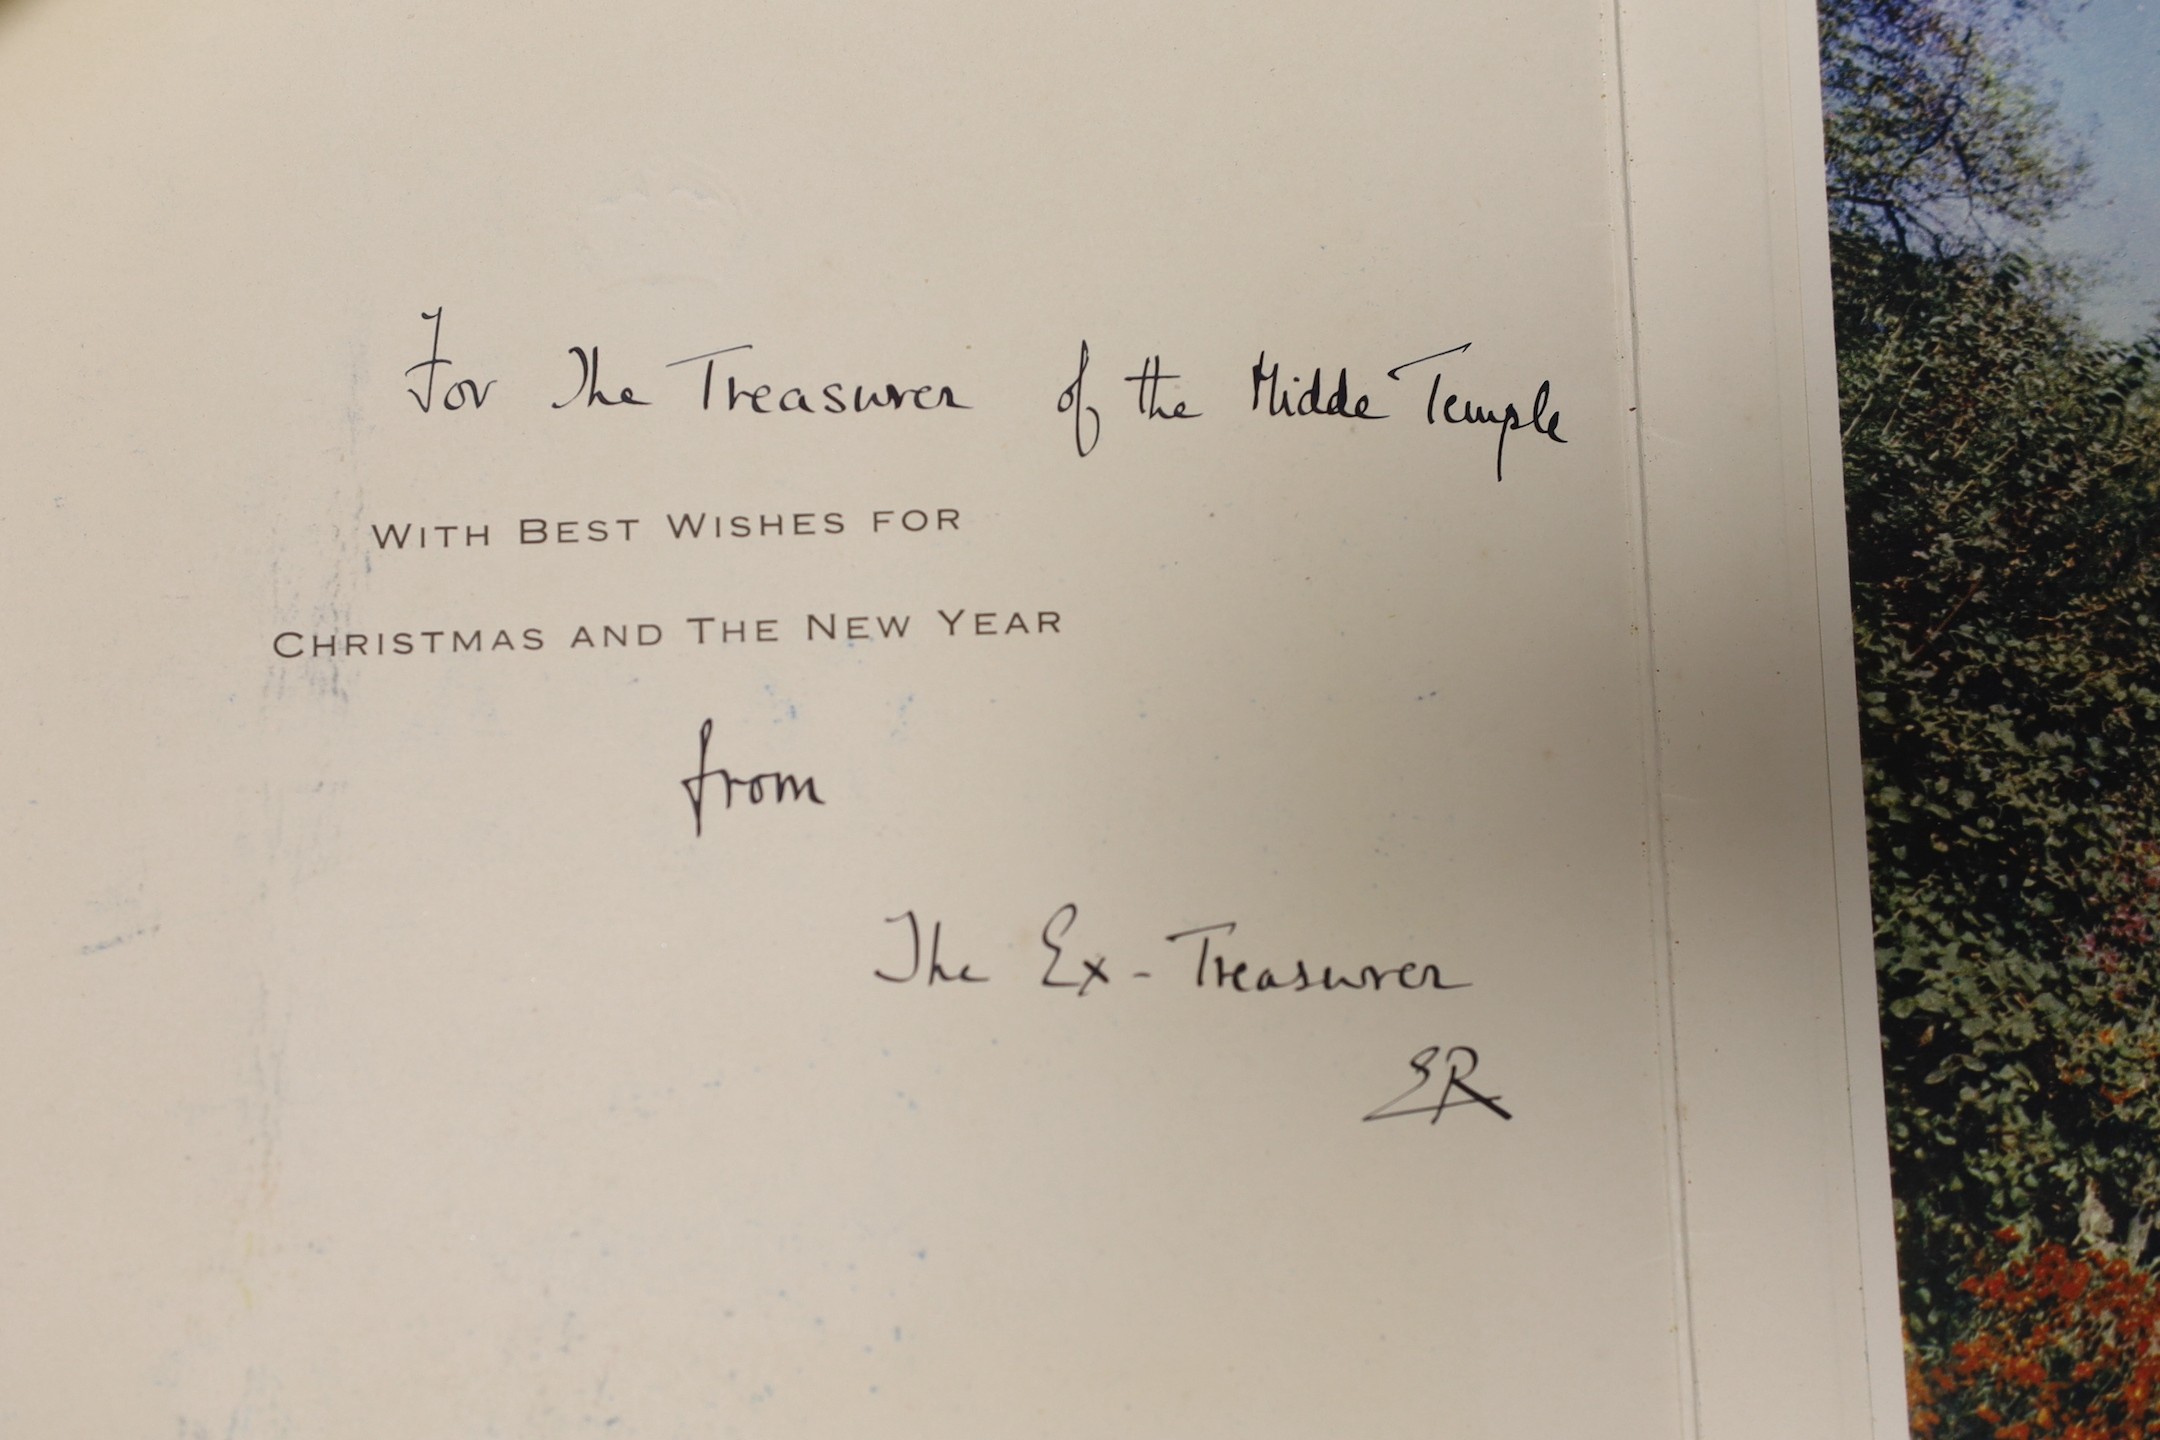 For The Treasurer of the Midde Temple
WITH BEST WISHES FOR
CHRISTMAS AND THE NEW YEAR
from
The Ex-Treasurer
ER